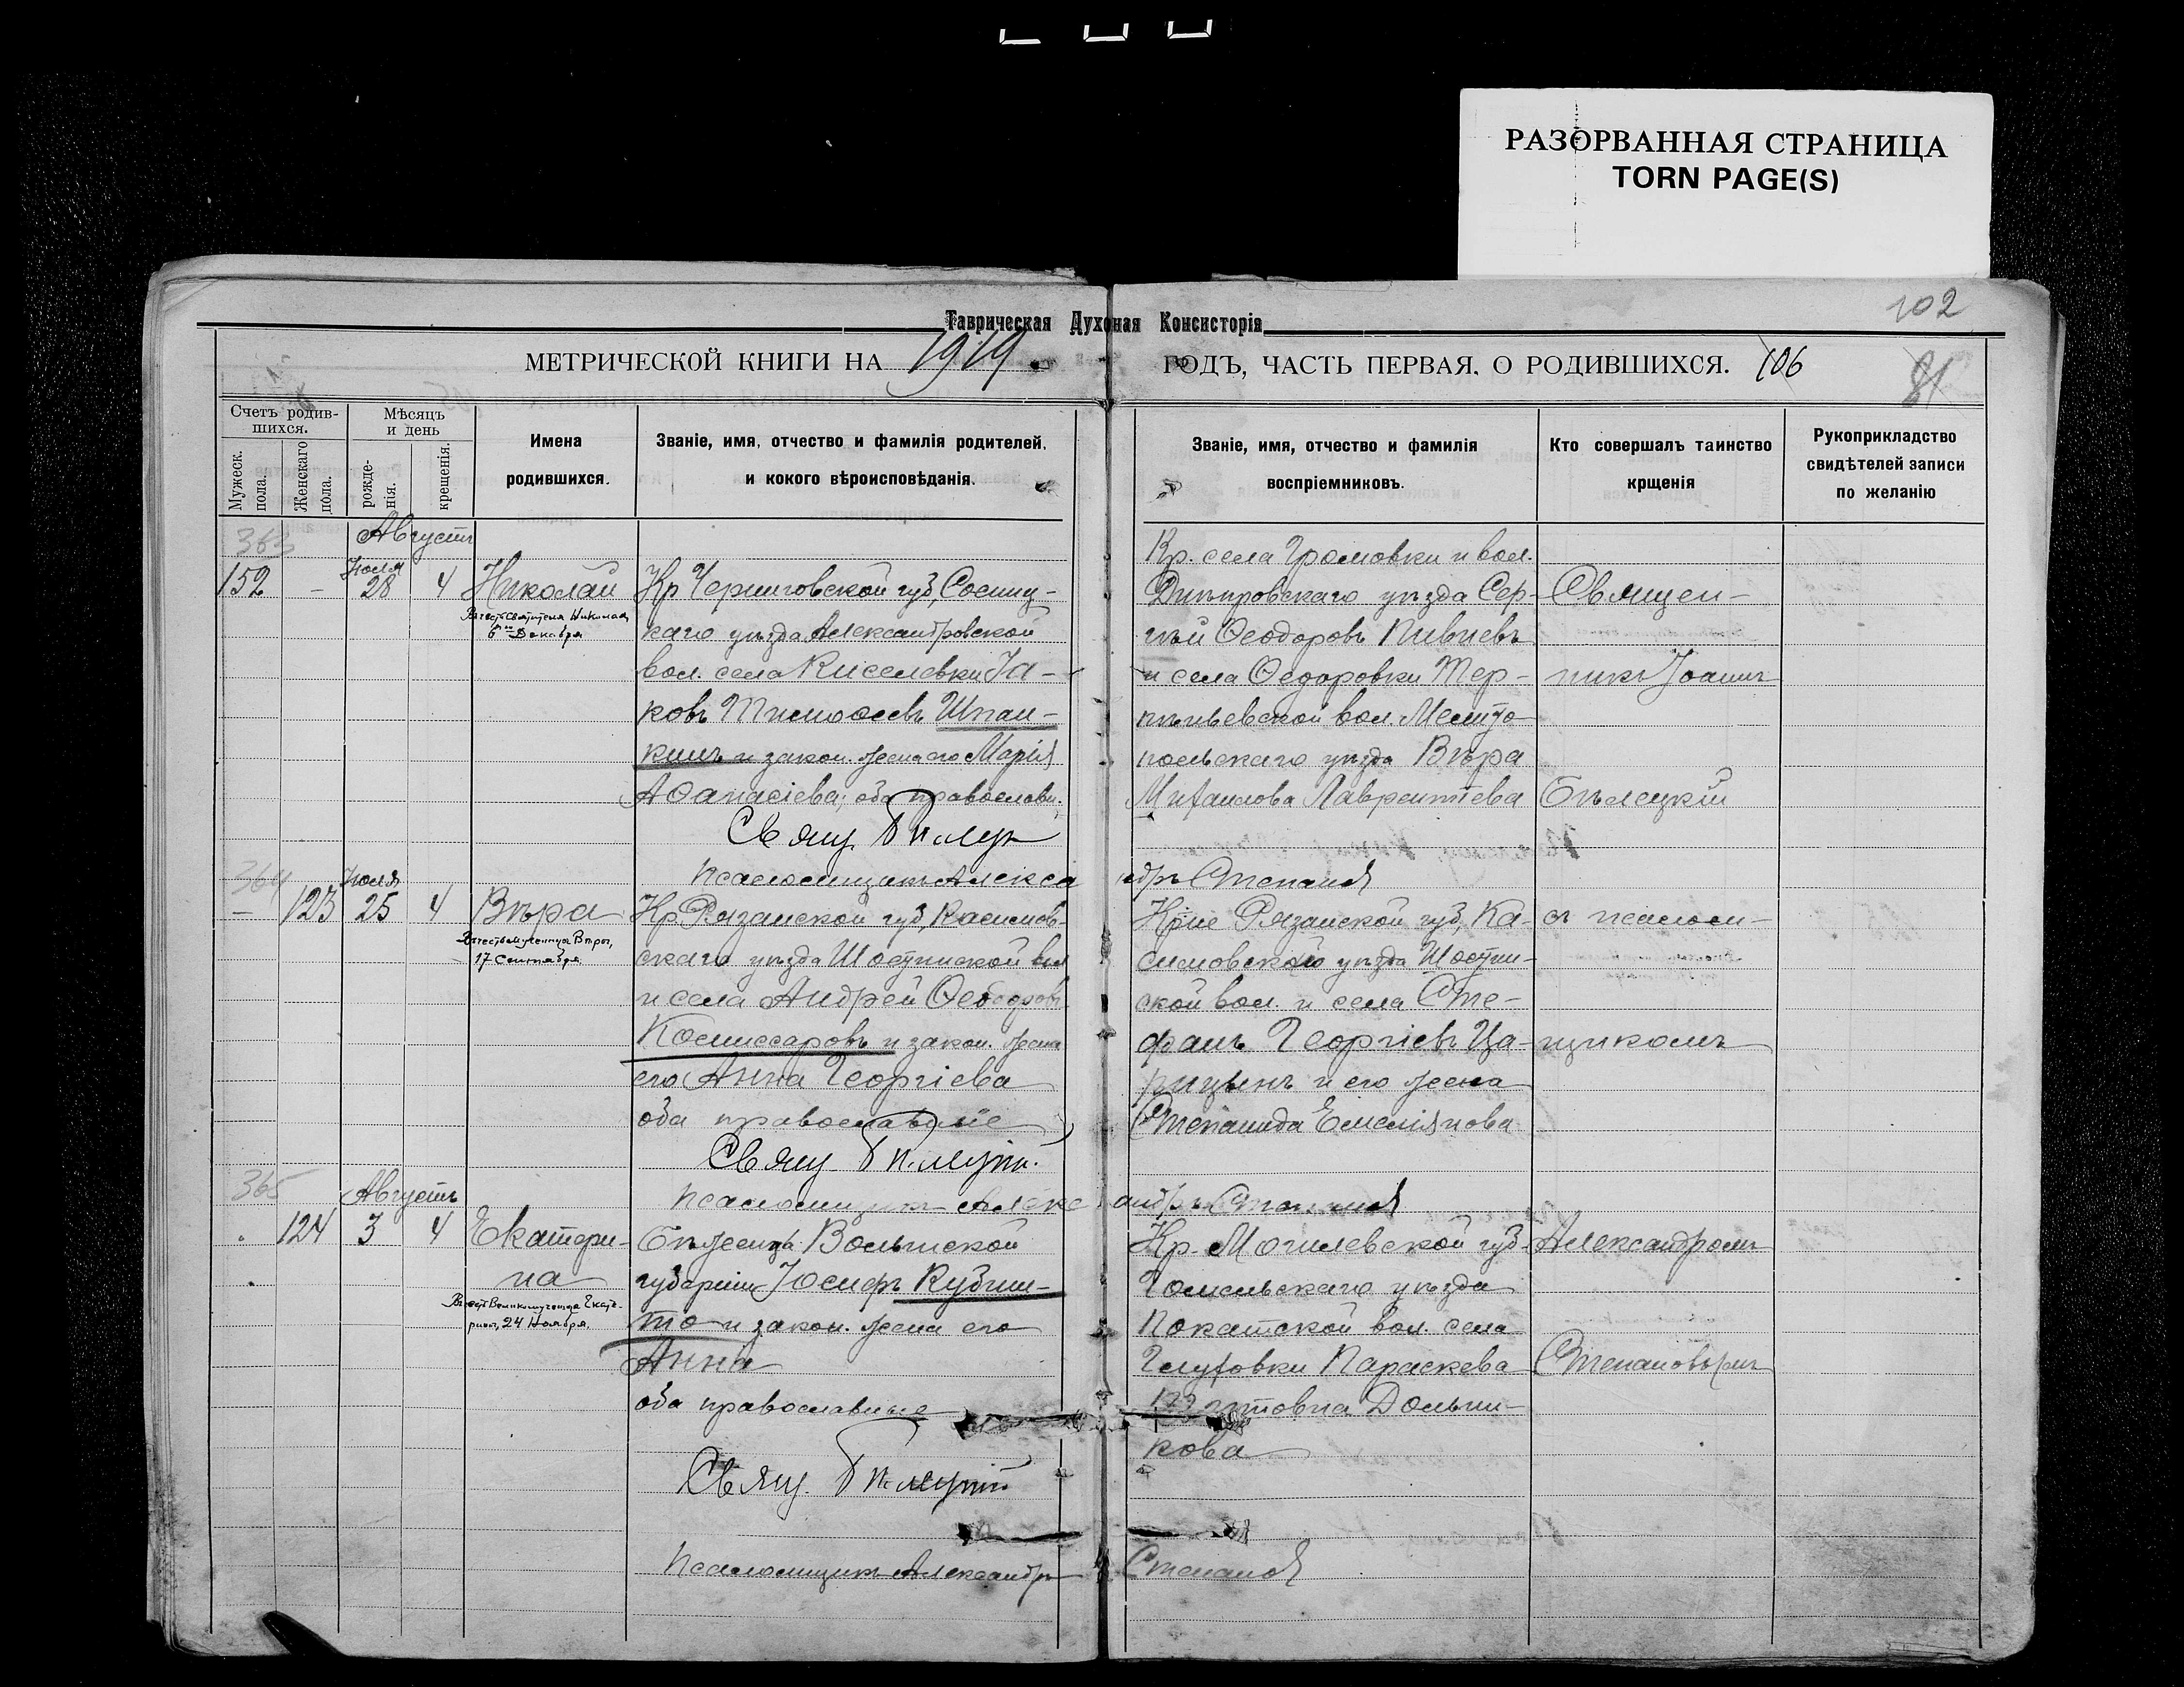 РАЗОРВАННАЯ СТРАНИЦА
TORN PAGE(S)
102
Таврическая Духоная Консисторія
МЕТРИЧЕСКОЙ КНИГИ НА 1919
ГОДЪ, ЧАСТЬ ПЕРВАЯ, О РОДИВШИХСЯ. 106
81
Счетъ родив-
шихся.
Мужеск.
пола.
Женскаго
пола.
Мѣсяцъ
и день
рожде-
нія.
крещенія.
Имена
родившихся.
Званіе, имя, отчество и фамилія родителей,
и кокого вѣроисповѣданія.
Званіе, имя, отчество и фамилія
воспріемниковъ.
Кто совершалъ таинство
крщенія
Рукоприкладство
свидѣтелей записи
по желанію
363
Августъ
152 - Іюля 28 4
Николай
Въ честь Святителя Николая,
6го Декабря
Кр Черниговской губ, Сосниц-
каго уѣзда Александровской
вол. села Киселевки Іа-
ковъ Тимоѳеевъ Шпан-
кинъ и закон. жена его Марія
Аѳанасіева; оба православн.
Свящ. Бѣлецк
Псаломщикъ Александръ Степановъ
Кр. села Громовки и вол.
Днѣпровскаго уѣзда Сер-
гѣй Ѳеодоровъ Пивневъ
и села Ѳедоровки Тер-
пѣньевской вол. Мелито-
польскаго уѣзда Вѣра
Михаилова Лаврентіева
Священ-
никъ Іоаннъ
Бѣлецкій
364
- 123 Іюля 25 4
Вѣра
Въ честь мученицы Вѣры,
17 Сентября
Кр. Рязанской губ, Касимов-
скаго уѣзда Шостинской вол
и села Андрей Ѳеодоровъ
Комиссаровъ и закон. жена
его Анна Георгіева
оба православные
Свящ Бѣлецкій
Псаломщикъ Александръ Степановъ
Кріе Рязанской губ, Ка-
симовскаго уѣзда Шостин-
ской вол. и села Сте-
фанъ Георгіевъ Ца-
рицынъ и его жена
Степанида Емеліянова
съ псалом-
щикомъ
365
Августъ
124 3 4
Екатери-
на
Въ честь Великомученицы Екате-
рины, 24 Ноября.
Бѣженцы Волынской
губерніи Іосифъ Кубии-
то и закон. жена его
Анна
оба православные
Свящ. Бѣлецкій
Псаломщикъ Александръ Степановъ
Кр. Могилевской губ.
Гомельскаго уѣзда
Покатской вол. села
Глуховки Параскева
Дольни-
кова
Александромъ
Степановымъ